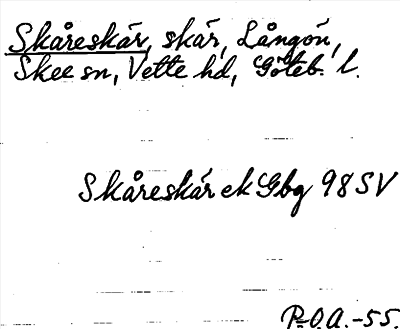 Skåreskär, skär, Långön,
Skee sn, Vette hd, Göteb. l.
Skåreskär ek Gbg 98 SV
P.O.A.-55.